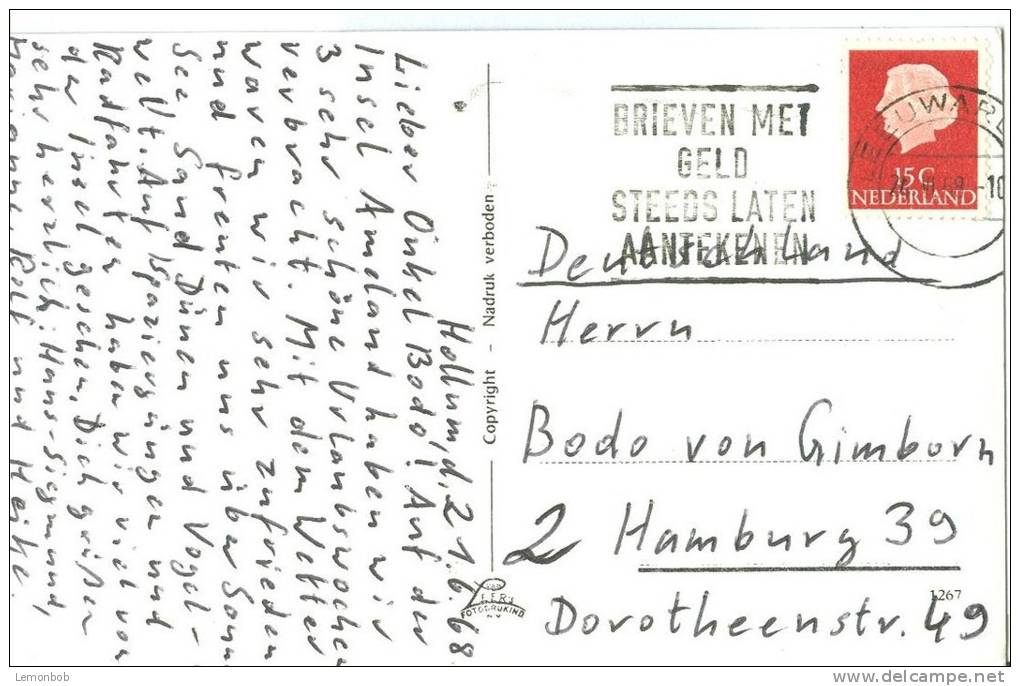 Hollum, d. 21.6.68
Lieber Onkel Bodo! Auf der
Insel Ameland haben wir
3 sehr schöne Urlaubswochen
verbracht. Mit dem Wetter
waren wir sehr zufrieden
und freuten uns über Sonn
See Sand Dünen und Vogel-
welt. Auf Spaziergängen und
Radfahrten haben wir viel von
der Insel gesehen. Dich grüßen
sehr herzlich: Hans-Siegmund,
Marianne, Rolf und Heike.
Copyright - Nadruk verboden
FOTODRUKIND
N.V.
BRIEVEN MET
GELD
STEEDS LATEN
AANTEKENEN
15 C
NEDERLAND
Deutschland
Herrn
Bodo von Gimborn
2 Hamburg 39
1267
Dorotheenstr. 49
Lemonbob
http://www.delcampe.net